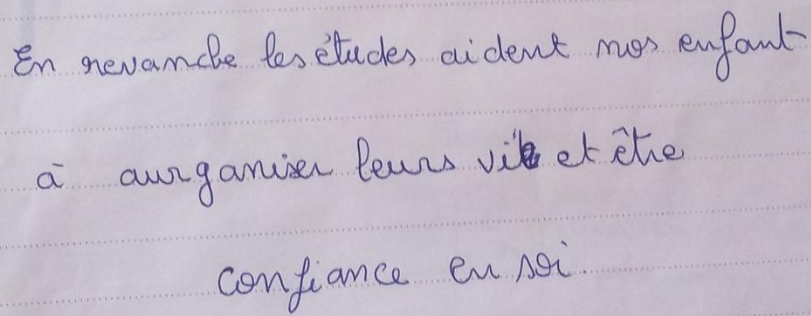 En revanche les études aident nos enfant
à aurganiser leurs vie et être
confiance en soi